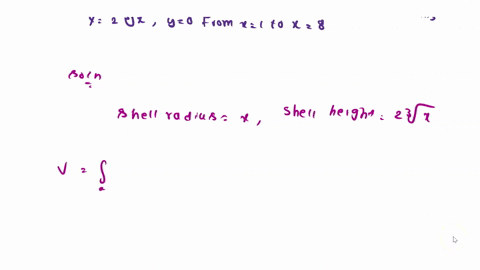 y = 2∛x, y=0 From x=1 to x = 8
Soln
Shell radius = x, Shell height = 2∛x
V = ∫